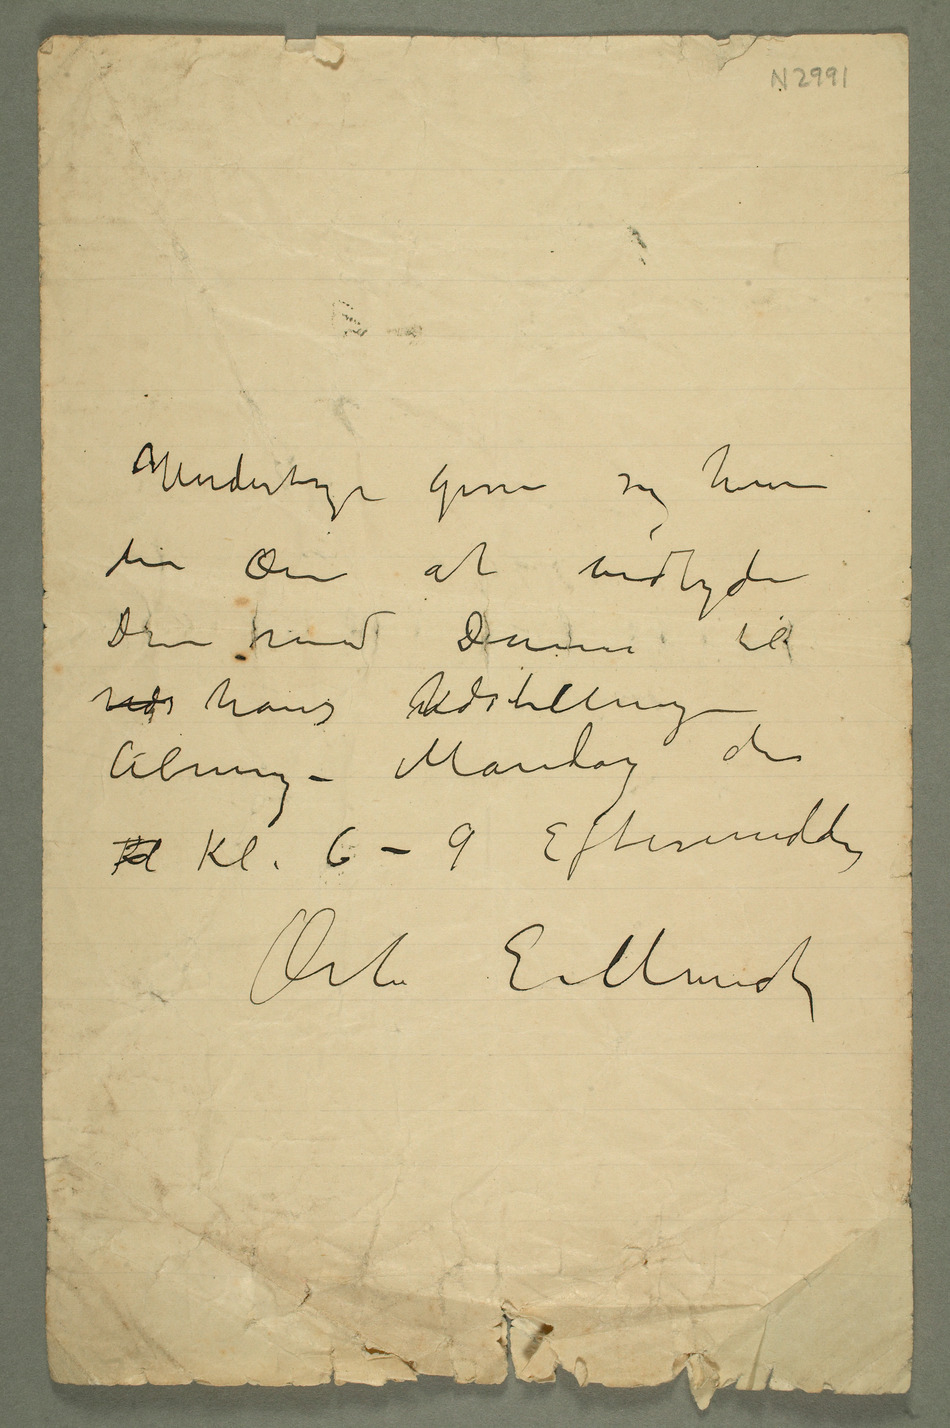 N 2991
Undertegn gjør sig herm
den Ære at indbyde
Dem med Damer til
hans Udstillings
Åbning – Mandag den
Kl. 6 – 9 Eftermiddg